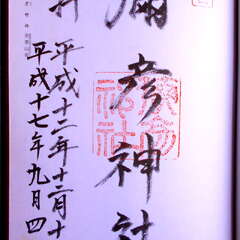 彌彦神社
平成十二年十二月十
平成十七年九月四